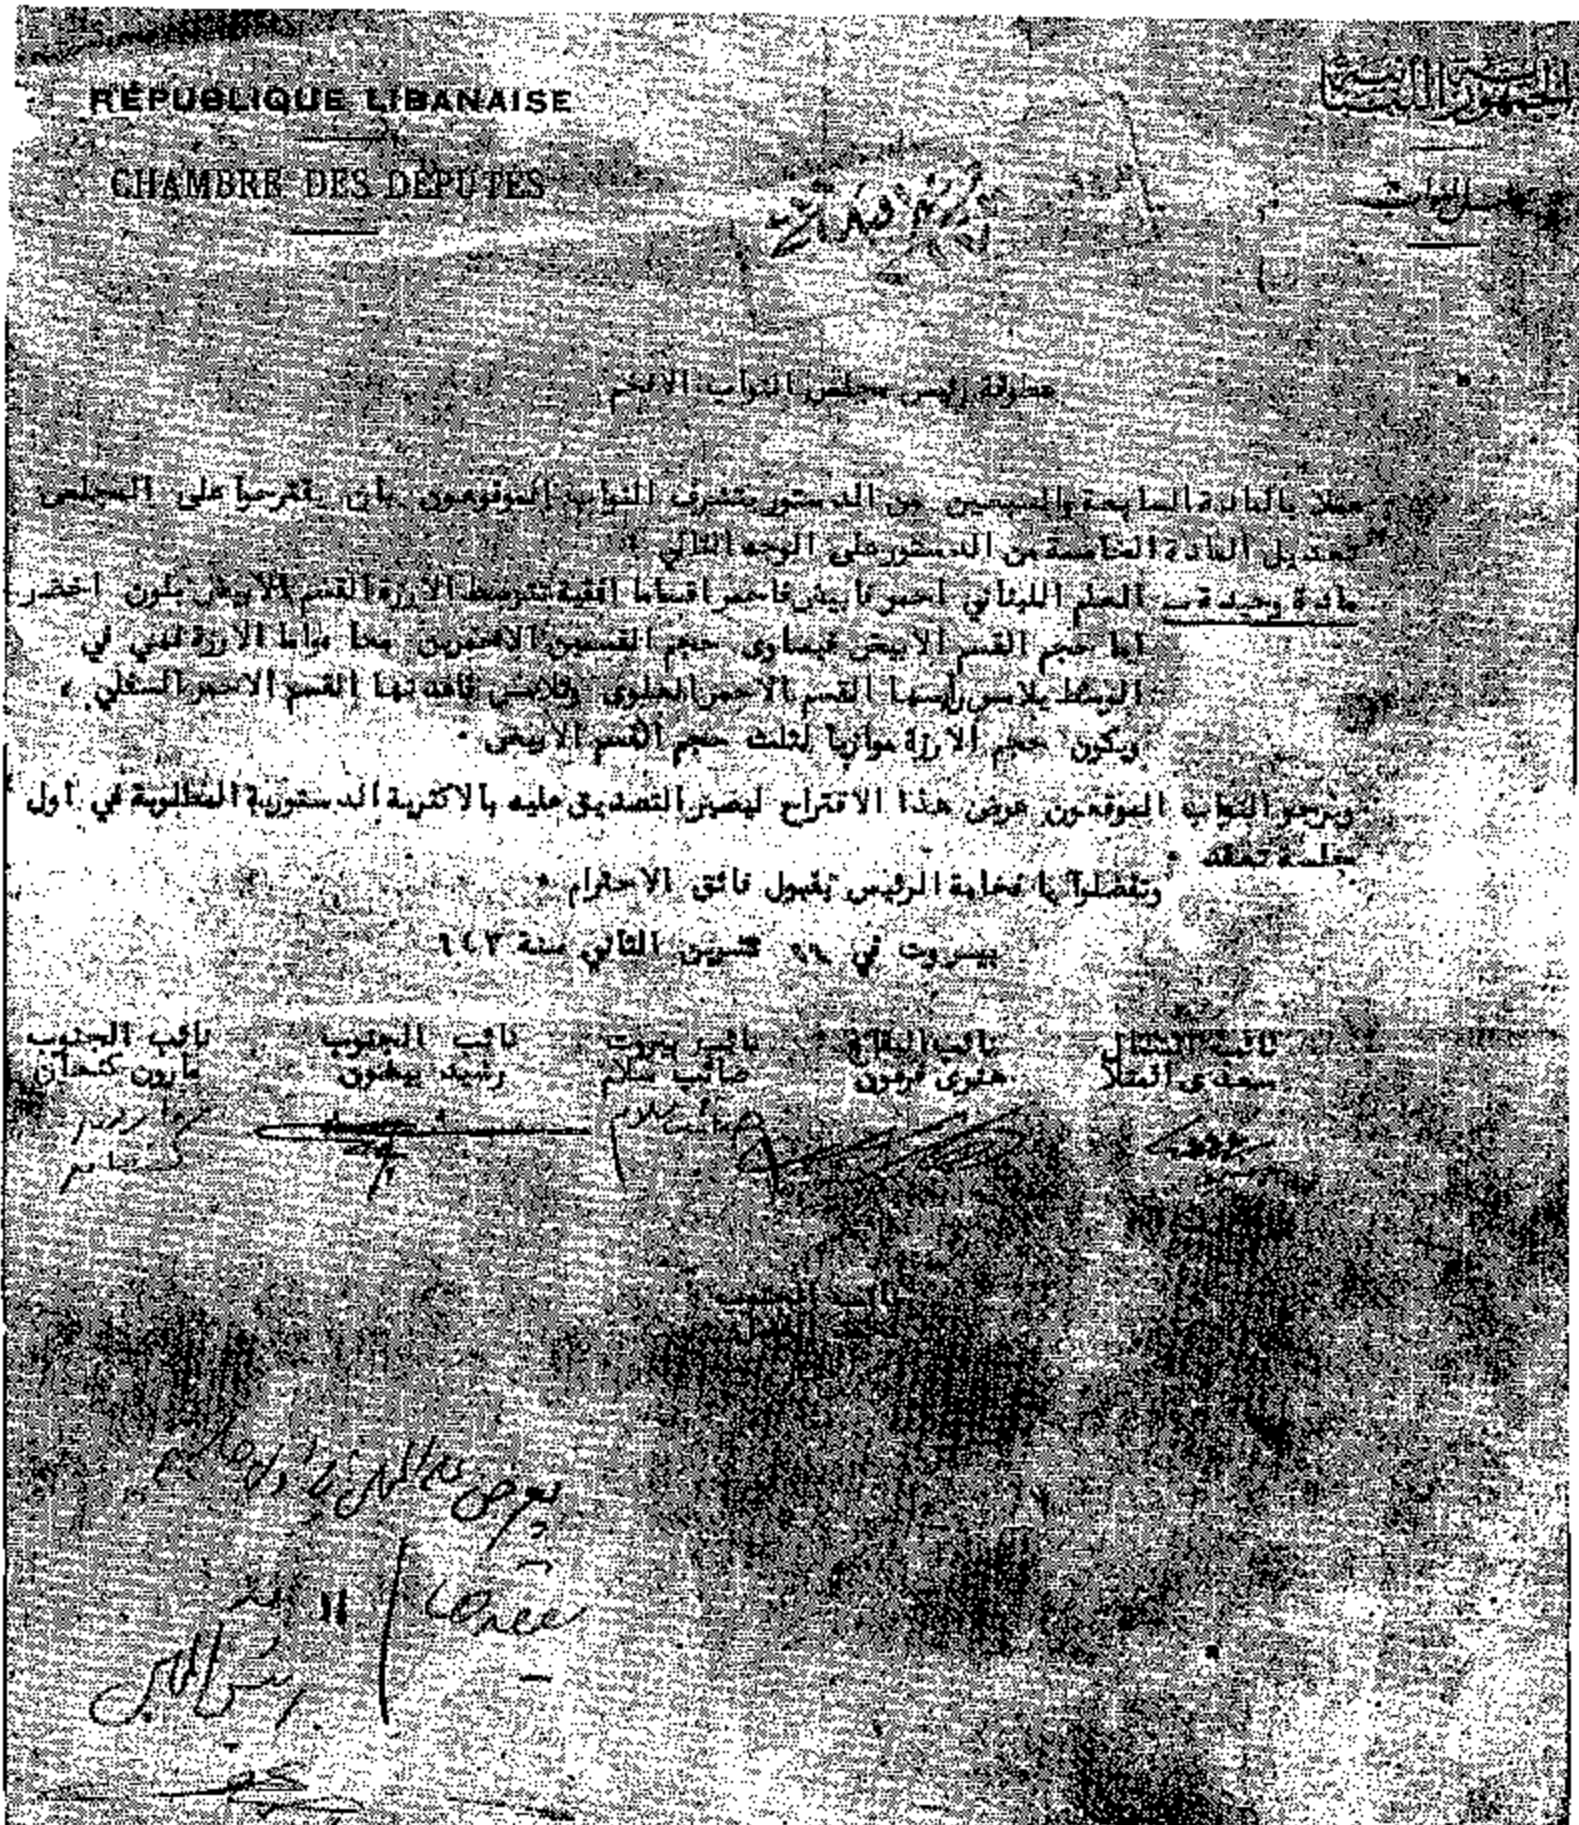 REPUBLIQUE LIBANAISE
الجمهورية اللبنانية
CHAMBRE DES DÉPUTÉS
مجلس النواب
عطوفة رئيس مجلس النواب الافخم
عملا بالمادة السابعة والسبعين من الدستور يتشرف النواب الموقعون بان يقترحوا على المجلس
تعديل المادة الخامسة من الدستور على الوجه التالي :
مادة وحيدة - العلم اللبناني احمر فابيض فاحمر اقساما افقية تتوسط الارزة القسم الابيض بلون اخضر
اما حجم القسم الابيض فيساوى حجم القسمين الاحمرين معا واما الارزة فهي في
الوسط يلامس رأسها القسم الاحمر العلوى وتلامس قاعدتها القسم الاحمر السفلي ،
ويكون حجم الارزة موازيا لثلث حجم القسم الابيض .
ويرجو النواب الموقعون عرض هذا الاقتراح ليصير التصديق عليه بالاكثرية الدستورية المطلوبة في اول
جلسة تعقد .
وتفضلوا يا فخامة الرئيس بقبول فائق الاحترام .
بيروت في تشرين الثاني سنة ٩٤٣
نائب الشمال نائب البقاع نائب بيروت نائب الجنوب نائب الجنوب
سعدى المنلا هنرى فرعون صائب سلام رشيد بيضون مارون كنعان
صائب سلام مارون
كنعان
نائب الجنوب
رئيس المجلس